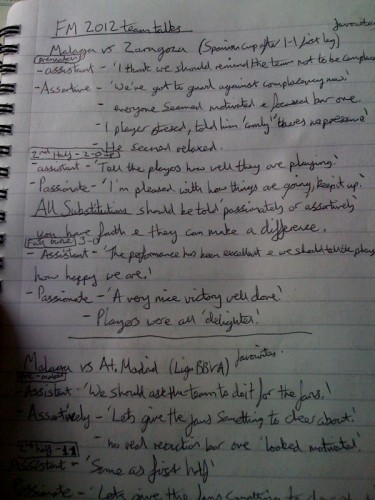 FM 2012 team talks
favourites
Malaga vs Zaragoza (Spanish cup after 1-1 first leg)
Prematch
- assistant - 'I think we should remind the team not to be complacent
- Assertive - 'We've got to guard against complacency now'
- everyone seemed motivated & focused bar one.
- 1 player stressed, told him 'calmly' 'theres no pressure'
- He seemed relaxed.
2nd Half - 2-0
- assistant - 'Tell the players how well they are playing.'
- Passionate - 'I'm pleased with how things are going, keep it up.'
All Substitutions should be told 'passionately or assertively'
you have faith & they can make a difference.
Full time 3-0
- Assistant - 'The performance has been excellent & we should tell the players
how happy we are.'
- Passionate - 'A very nice victory well done.'
- Players were all 'delighted'.
Malaga vs At. Madrid (Liga BBVA) favourites.
- Assistant - 'We should ask the team to do it for the fans.'
- Assertively - 'Lets give the fans something to cheer about.'
- no real reaction bar one 'looked motivated'
2nd half - 1-1
Assistant - 'Same as first half'
Passionate - 'Lets give the fans something to cheer